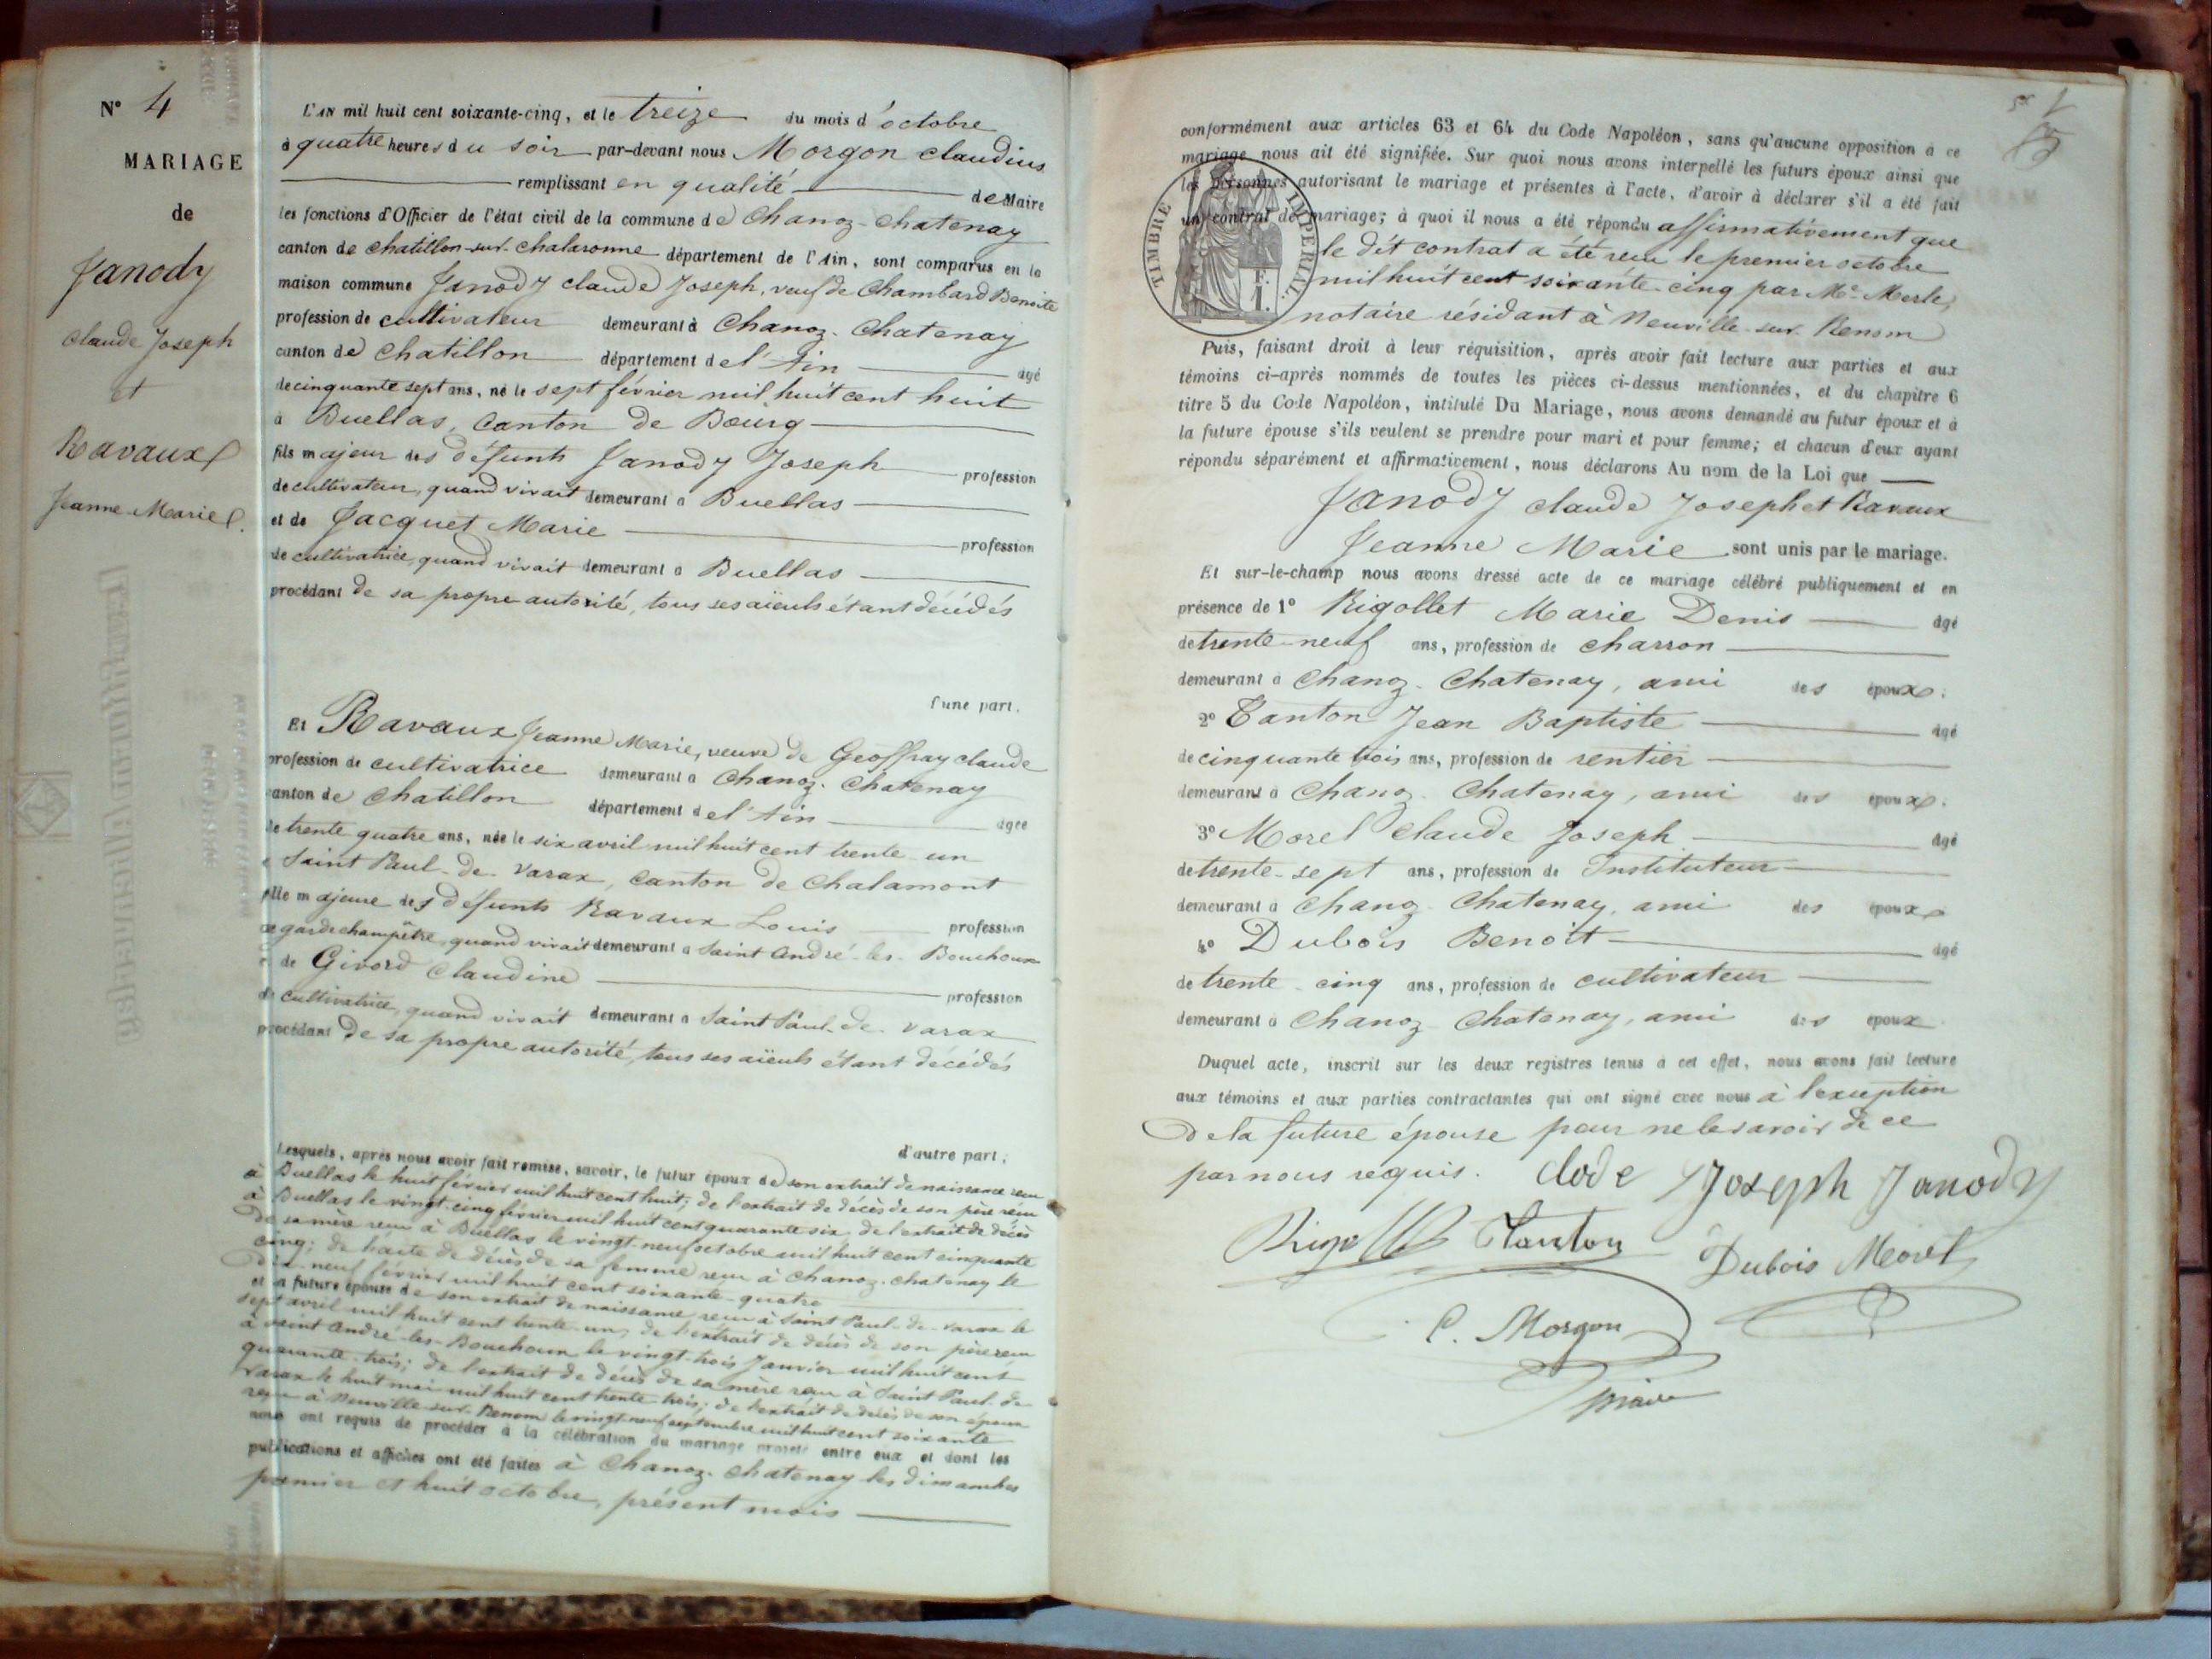 N° 4
MARIAGE
de
Janody
Claude Joseph
et
Ravaux
Jeanne Marie.
L'AN mil huit cent soixante-cinq, et le treize du mois d'octobre
à quatre heures du soir par-devant nous Morgon Claudius
remplissant en qualité de Maire
les fonctions d'Officier de l'état civil de la commune de Chanoz-Chatenay
canton de Chatillon-sur-Chalaronne département de l'Ain, sont comparus en la
maison commune Janody Claude Joseph, veuf de Chambard Benoite
profession de cultivateur demeurant à Chanoz-Chatenay
canton de Chatillon département de l'Ain âgé
de cinquante sept ans, né le sept février mil huit cent huit
à Buellas, Canton de Bourg
fils majeur des défunts Janody Joseph profession
de cultivateur, quand vivait demeurant à Buellas
et de Jacquet Marie profession
de cultivatrice, quand vivait demeurant à Buellas
procédant de sa propre autorité, tous ses aïeuls étant décédés
d'une part.
Et Ravaux Jeanne Marie, veuve de Geoffray Claude
profession de cultivatrice demeurant à Chanoz-Chatenay
canton de Chatillon département de l'Ain âgée
de trente quatre ans, née le six avril mil huit cent trente-un
à Saint Paul-de-Varax, Canton de Chalamont
fille majeure des défunts Ravaux Louis profession
de garde champêtre, quand vivait demeurant à Saint André-les-Bouchoux
et de Givord Claudine profession
de cultivatrice, quand vivait demeurant à Saint Paul-de-Varax
procédant de sa propre autorité, tous ses aïeuls étant décédés
d'autre part;
Lesquels, après nous avoir fait remise, savoir, le futur époux de son extrait de naissance reçu
à Buellas le huit février mil huit cent huit; de l'extrait de décès de son père reçu
à Buellas le vingt-cinq février mil huit cent quarante six de l'extrait de décès
de sa mère reçu à Buellas le vingt-neuf octobre mil huit cent cinquante
cinq; de l'acte de décès de sa femme reçu à Chanoz-Chatenay le
dix-neuf février mil huit cent soixante-quatre
et la future épouse de son extrait de naissance reçu à Saint Paul-de-Varax le
sept avril mil huit cent trente-un, de l'extrait de décès de son père reçu
à Saint André-les-Bouchoux le vingt-trois Janvier mil huit cent
quarante-trois; de l'extrait de décès de sa mère reçu à Saint Paul-de-
Varax le huit mai mil huit cent trente trois; de l'extrait de décès de son époux
reçu à Neuville-sur-Renom le vingt-neuf septembre mil huit cent soixante
nous ont requis de procéder à la célébration du mariage projeté entre eux et dont les
publications et affiches ont été faites à Chanoz-Chatenay les dimanches
premier et huit octobre, présent mois
conformément aux articles 63 et 64 du Code Napoléon, sans qu'aucune opposition à ce
mariage nous ait été signifiée. Sur quoi nous avons interpellé les futurs époux ainsi que
les personnes autorisant le mariage et présentes à l'acte, d'avoir à déclarer s'il a été fait
un contrat de mariage; à quoi il nous a été répondu affirmativement que
le dit contrat a été reçu le premier octobre
mil huit cent soixante-cinq par Me Merle,
notaire résidant à Neuville-sur-Renom
TIMBRE IMPERIAL.
1 F.
Puis, faisant droit à leur réquisition, après avoir fait lecture aux parties et aux
témoins ci-après nommés de toutes les pièces ci-dessus mentionnées, et du chapitre 6
titre 5 du Code Napoléon, intitulé Du Mariage, nous avons demandé au futur époux et à
la future épouse s'ils veulent se prendre pour mari et pour femme; et chacun d'eux ayant
répondu séparément et affirmativement, nous déclarons Au nom de la Loi que
Janody Claude Joseph et Ravaux
Jeanne Marie sont unis par le mariage.
Et sur-le-champ nous avons dressé acte de ce mariage célébré publiquement et en
présence de 1° Rigollet Marie Denis âgé
de trente-neuf ans, profession de charron
demeurant à Chanoz-Chatenay, ami des époux.
2° Tanton Jean Baptiste âgé
de cinquante trois ans, profession de rentier
demeurant à Chanoz-Chatenay, ami des époux.
3° Morel Claude Joseph âgé
de trente-sept ans, profession de Instituteur
demeurant à Chanoz-Chatenay, ami des époux
4° Dubois Benoît âgé
de trente-cinq ans, profession de cultivateur
demeurant à Chanoz-Chatenay, ami des époux
Duquel acte, inscrit sur les deux registres tenus à cet effet, nous avons fait lecture
aux témoins et aux parties contractantes qui ont signé avec nous à l'exception
de la future épouse pour ne le savoir de ce
par nous requis. Clode Joseph Janody
Rigollet Tanton Dubois Morel
C. Morgon
maire